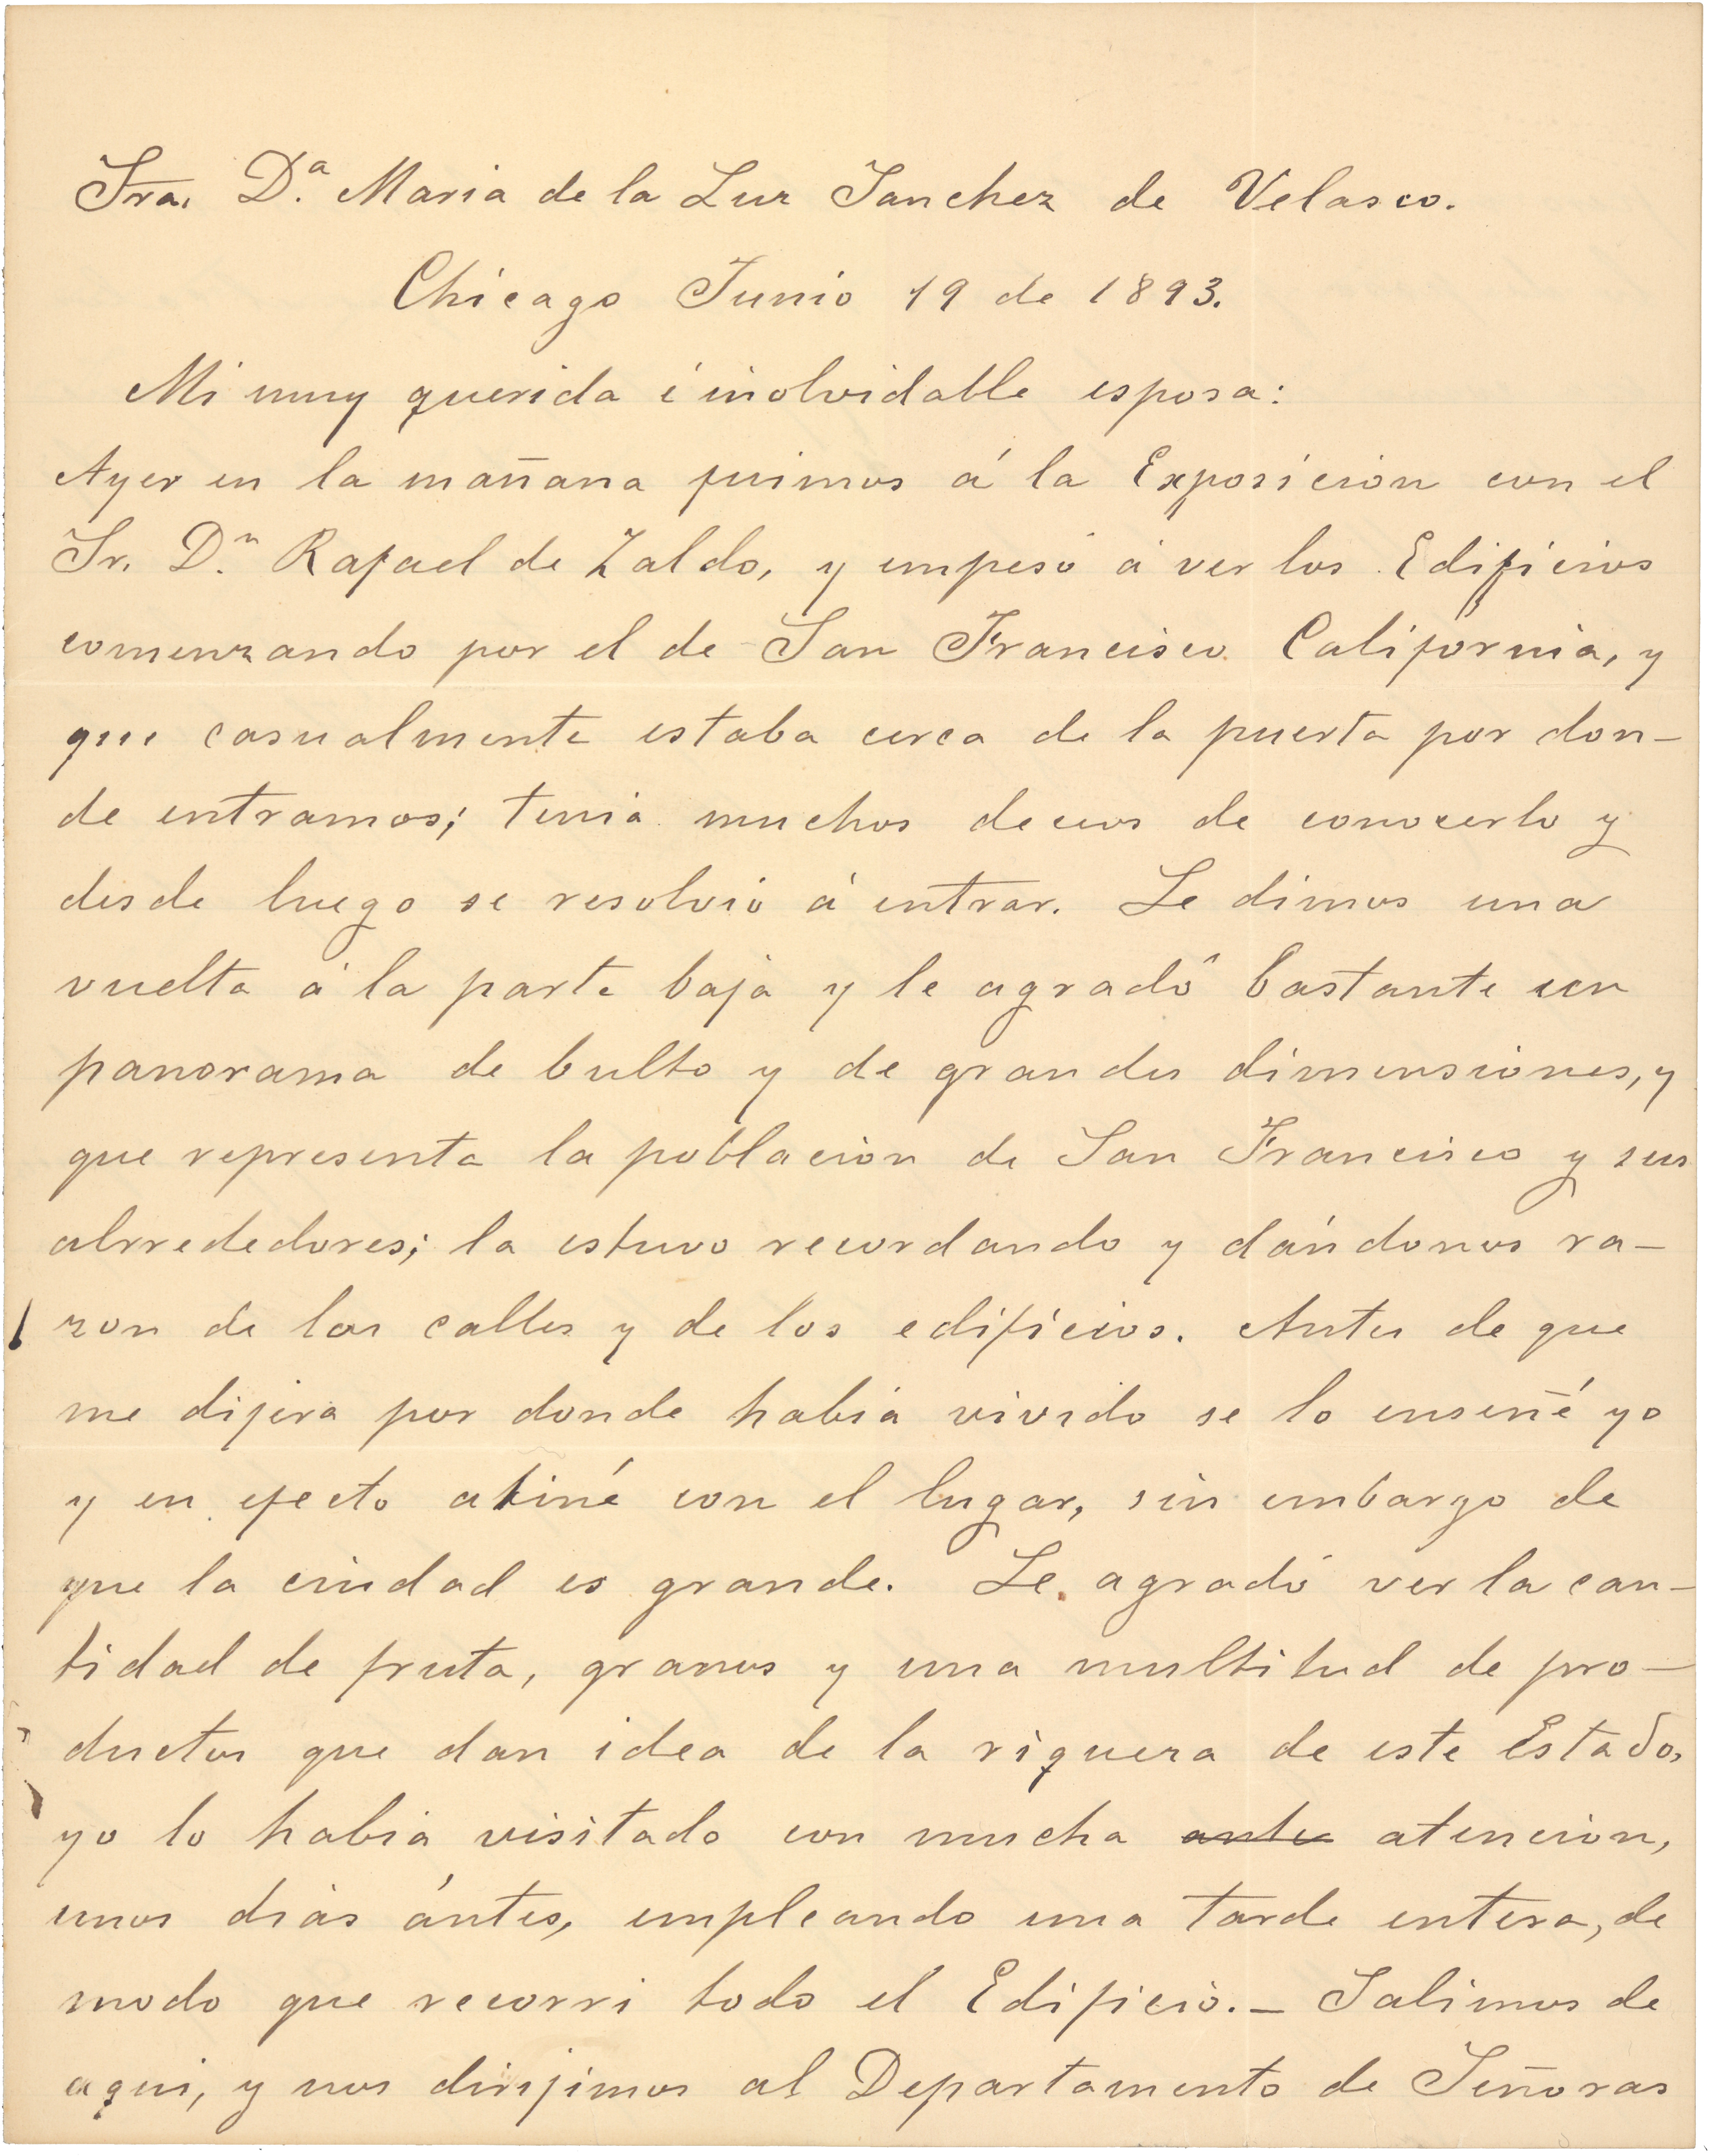 Sra. D.ª Maria de la Luz Sanchez de Velasco.
Chicago Junio 19 de 1893.
Mi muy querida é inolvidable esposa:
Ayer en la mañana fuimos á la Exposicion con el
Sr. D.n Rafael de Zaldo, y empesó á ver los Edificios
comenzando por el de San Francisco California, y
que casualmente estaba cerca de la puerta por don-
de entramos; tenia muchos deceos de conocerlo y
desde luego se resolvió á entrar. Le dimos una
vuelta á la parte baja y le agradó bastante un
panorama de bulto y de grandes dimensiones, y
que representa la poblacion de San Francisco y sus
alrrededores; la estuvo recordando y dándonos ra-
zon de las calles y de los edificios. Antes de que
me dijera por donde habia vivido se lo enseñé yo
y en efecto atiné con el lugar, sin embargo de
que la ciudad es grande. Le agradó ver la can-
tidad de fruta, granos y una multitud de pro-
ductos que dan idea de la riqueza de este Estado,
yo lo habia visitado con mucha ante atencion,
unos dias ántes, empleando una tarde entera, de
modo que recorri todo el Edificio.- Salimos de
aqui, y nos dirijimos al Departamento de Señoras